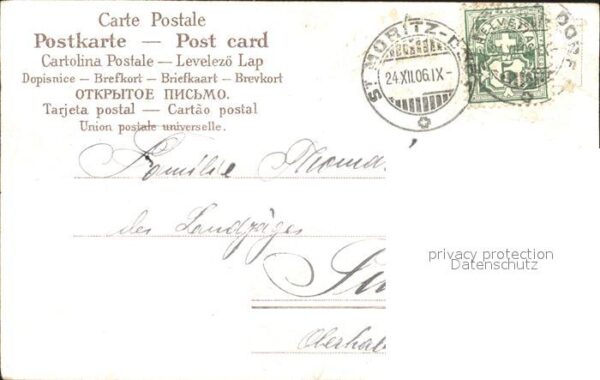 Carte Postale
Postkarte — Post card
Cartolina Postale — Levelező Lap
Dopisnice — Brefkort — Briefkaart — Brevkort
ОТКРЫТОЕ ПИСЬМО.
Tarjeta postal — Cartão postal
Union postale universelle.
ST. MORITZ-D
24.XII.06.IX-
HELVETIA
DORF
Familie Thoma
des Landjäges
privacy protection
Datenschutz
Oberha